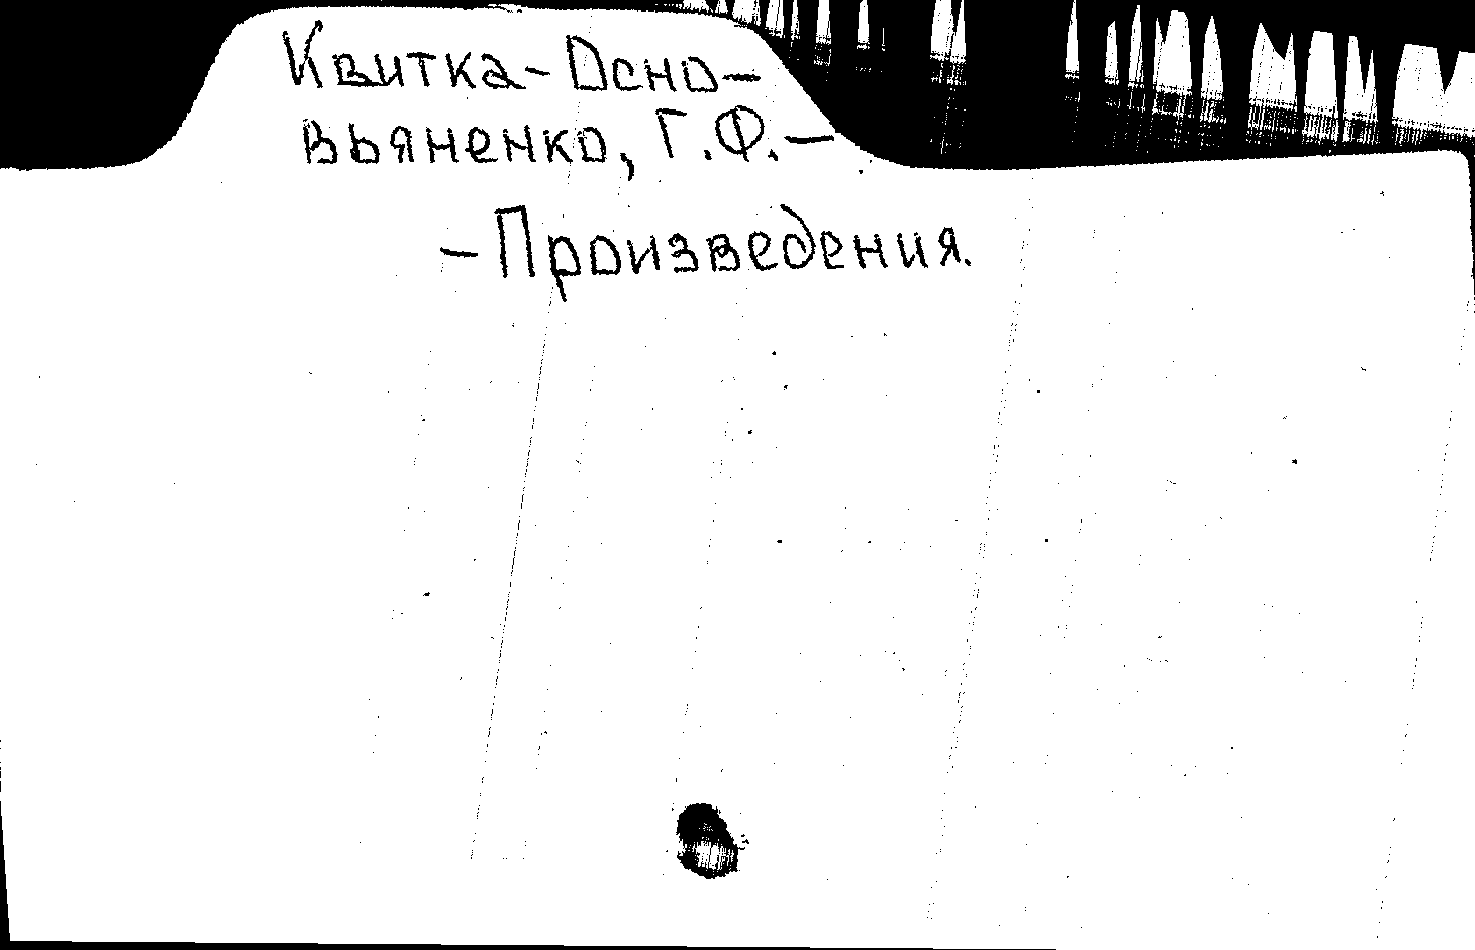 Квитка-Осно-
вьяненко, Г.Ф.-
-Произведения.